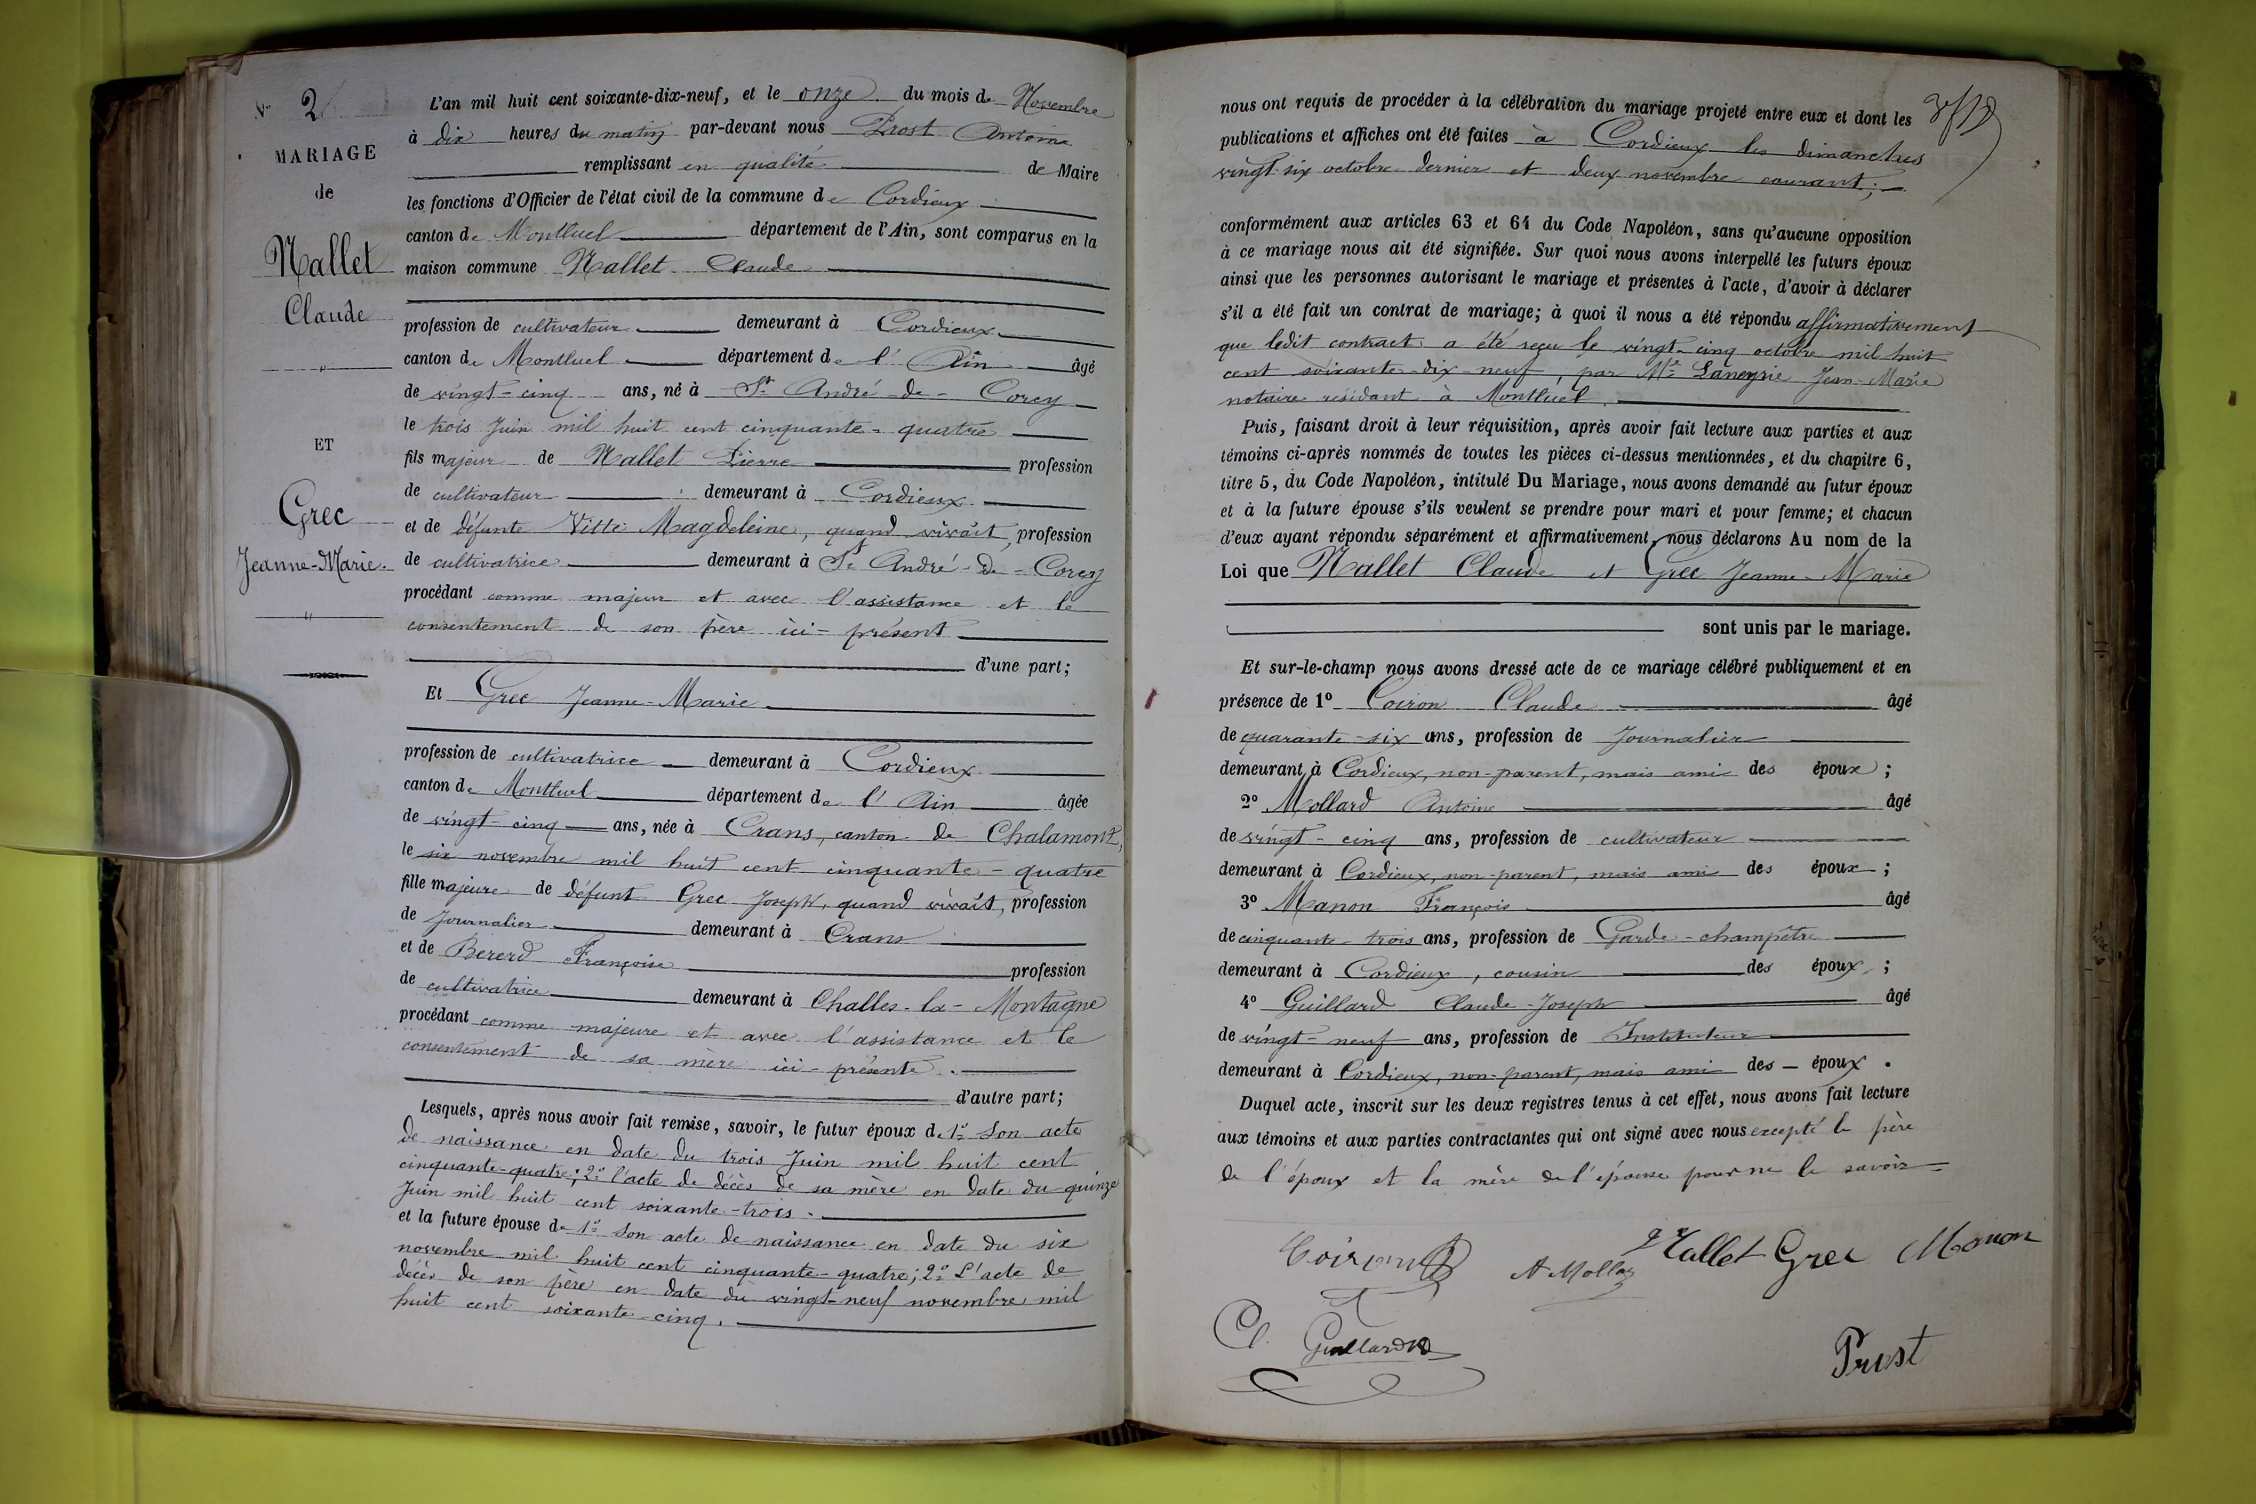 N° 2
MARIAGE
de
Nallet
Claude
"
ET
Grec
Jeanne-Marie.
"
L'an mil huit cent soixante-dix-neuf, et le onze du mois de Novembre
à dix heures du matin par-devant nous Prost Antoine
remplissant en qualité de Maire
les fonctions d'Officier de l'état civil de la commune de Cordieux
canton de Montluel département de l'Ain, sont comparus en la
maison commune Nallet Claude
profession de cultivateur demeurant à Cordieux
canton de Montluel département de l'Ain âgé
de vingt-cinq ans, né à St André-de-Corcy
le trois Juin mil huit cent cinquante-quatre
fils majeur de Nallet Pierre profession
de cultivateur demeurant à Cordieux
et de défunte Vitte Magdeleine, quand vivait, profession
de cultivatrice demeurant à St André-de-Corcy
procédant comme majeur et avec l'assistance et le
consentement de son père ici-présent
d'une part;
Et Grec Jeanne-Marie
profession de cultivatrice demeurant à Cordieux
canton de Montluel département de l'Ain âgée
de vingt-cinq ans, née à Crans, canton de Chalamont,
le six novembre mil huit cent cinquante-quatre
fille majeure de défunt Grec Joseph, quand vivait, profession
de Journalier demeurant à Crans
et de Bererd Françoise profession
de cultivatrice demeurant à Challes-la-Montagne
procédant comme majeure et avec l'assistance et le
consentement de sa mère ici-présente.
d'autre part;
Lesquels, après nous avoir fait remise, savoir, le futur époux de 1° Son acte
de naissance en date du trois Juin mil huit cent
cinquante-quatre; 2° l'acte de décès de sa mère en date du quinze
Juin mil huit cent soixante-trois.
et la future épouse de 1° Son acte de naissance en date du six
novembre mil huit cent cinquante-quatre; 2° L'acte de
décès de son père en date du vingt-neuf novembre mil
huit cent soixante-cinq.
nous ont requis de procéder à la célébration du mariage projeté entre eux et dont les
publications et affiches ont été faites à Cordieux les dimanches
vingt-six octobre dernier et deux novembre courant;
conformément aux articles 63 et 64 du Code Napoléon, sans qu'aucune opposition
à ce mariage nous ait été signifiée. Sur quoi nous avons interpellé les futurs époux
ainsi que les personnes autorisant le mariage et présentes à l'acte, d'avoir à déclarer
s'il a été fait un contrat de mariage; à quoi il nous a été répondu affirmativement
que ledit contract a été reçu le vingt-cinq octobre mil huit
cent soixante-dix-neuf, par Me Laneyrie Jean-Marie
notaire résidant à Montluel.
Puis, faisant droit à leur réquisition, après avoir fait lecture aux parties et aux
témoins ci-après nommés de toutes les pièces ci-dessus mentionnées, et du chapitre 6,
titre 5, du Code Napoléon, intitulé Du Mariage, nous avons demandé au futur époux
et à la future épouse s'ils veulent se prendre pour mari et pour femme; et chacun
d'eux ayant répondu séparément et affirmativement, nous déclarons Au nom de la
Loi que Nallet Claude et Grec Jeanne-Marie
sont unis par le mariage.
Et sur-le-champ nous avons dressé acte de ce mariage célébré publiquement et en
présence de 1° Coiron Claude âgé
de quarante-six ans, profession de Journalier
demeurant à Cordieux, non-parent, mais ami des époux;
2° Mollard Antoine âgé
de vingt-cinq ans, profession de cultivateur
demeurant à Cordieux, non-parent, mais ami des époux;
3° Manon François âgé
de cinquante-trois ans, profession de Garde-champêtre
demeurant à Cordieux, cousin des époux;
4° Guillard Claude-Joseph âgé
de vingt-neuf ans, profession de Instituteur
demeurant à Cordieux, non-parent, mais ami des époux.
Duquel acte, inscrit sur les deux registres tenus à cet effet, nous avons fait lecture
aux témoins et aux parties contractantes qui ont signé avec nous excepté le père
de l'époux et la mère de l'épouse pour ne le savoir
Coiron A Mollar Nallet Grec Manon
Cl. Guillard
Prost